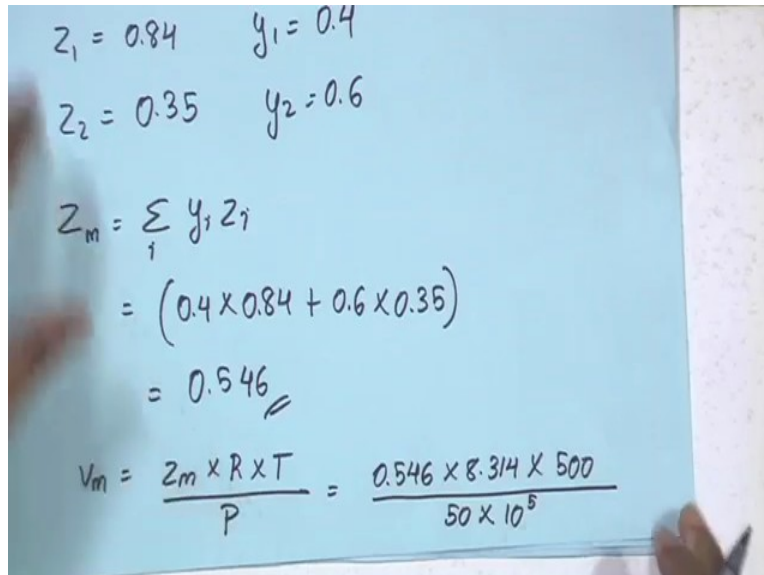 Z₁ = 0.84 y₁ = 0.4
Z₂ = 0.35 y₂ = 0.6
Zₘ = Σᵢ yᵢ Zᵢ
= (0.4 × 0.84 + 0.6 × 0.35)
= 0.546
Vₘ = Zₘ × R × T / P = 0.546 × 8.314 × 500 / 50 × 10⁵